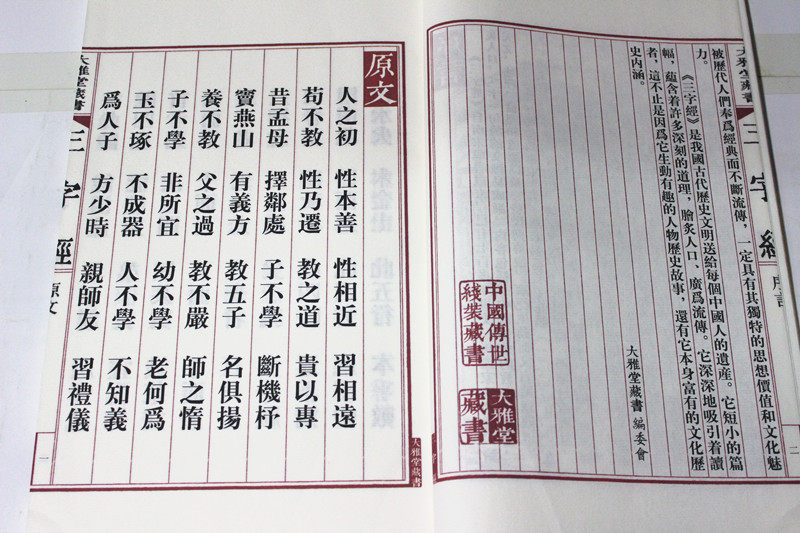 大雅堂藏書
三字經
序言
二
被歷代人們奉爲經典而不斷流傳，一定具有其獨特的思想價值和文化魅
力。
《三字經》是我國古代歷史文明送給每個中國人的遺産。它短小的篇
幅，蘊含着許多深刻的道理，膾炙人口、廣爲流傳。它深深地吸引着讀
者，這不止是因爲它生動有趣的人物歷史故事，還有它本身富有的文化歷
史内涵。
大雅堂藏書 編委會
中國傳世
綫裝藏書
大雅堂
藏書
大雅堂藏書
原文
人之初 性本善 性相近 習相遠
苟不教 性乃遷 教之道 貴以專
昔孟母 擇鄰處 子不學 斷機杼
竇燕山 有義方 教五子 名俱揚
養不教 父之過 教不嚴 師之惰
子不學 非所宜 幼不學 老何爲
玉不琢 不成器 人不學 不知義
爲人子 方少時 親師友 習禮儀
大雅堂藏書
三字經
原文
一